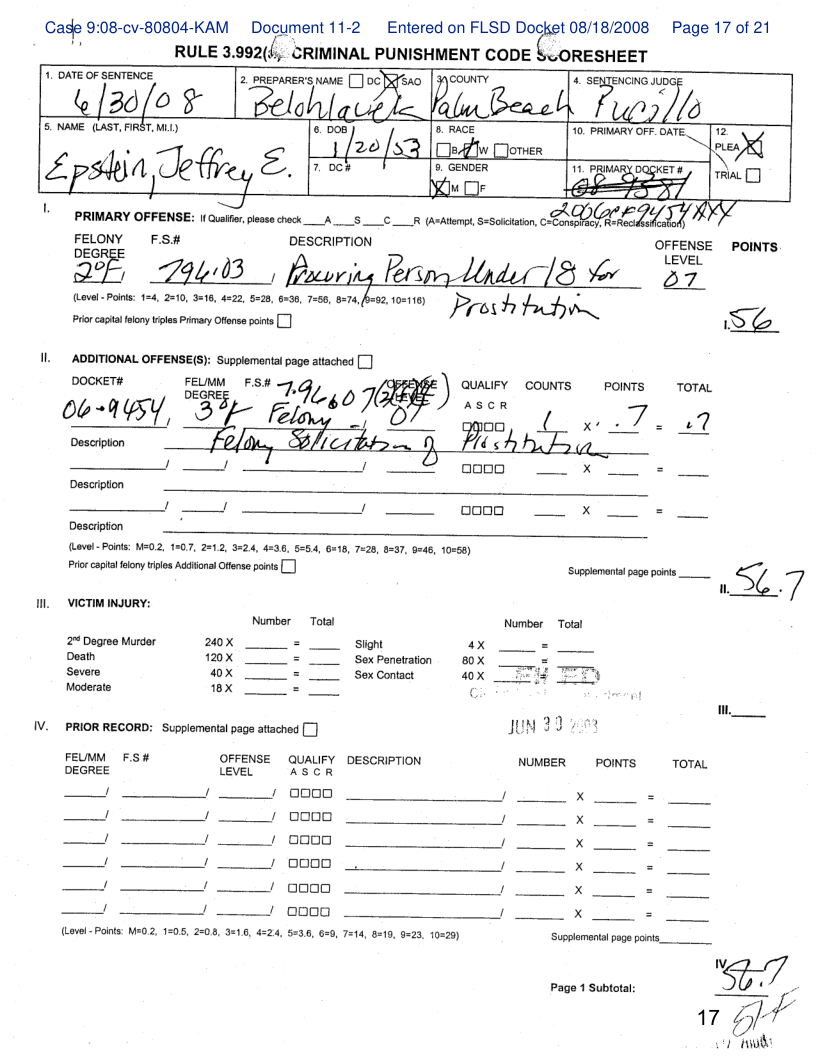 Case 9:08-cv-80804-KAM Document 11-2 Entered on FLSD Docket 08/18/2008 Page 17 of 21
RULE 3.992( CRIMINAL PUNISHMENT CODE SCORESHEET
1. DATE OF SENTENCE
6/30/08
2. PREPARER'S NAME DC SAO
Belohlavek
3. COUNTY
Palm Beach
4. SENTENCING JUDGE
Pucillo
5. NAME (LAST, FIRST, MI.I.)
Epstein, Jeffrey E.
6. DOB
1/20/53
7. DC#
8. RACE
B W OTHER
9. GENDER
M F
10. PRIMARY OFF. DATE
11. PRIMARY DOCKET #
08-9381
2006CF9454AXX
12.
PLEA
TRIAL
I. PRIMARY OFFENSE: If Qualifier, please check ___A ___S ___C ___R (A=Attempt, S=Solicitation, C=Conspiracy, R=Reclassification)
FELONY DEGREE F.S.# DESCRIPTION OFFENSE LEVEL POINTS
2°F, 796.03, Procuring Person Under 18 for 07
Prostitution
(Level - Points: 1=4, 2=10, 3=16, 4=22, 5=28, 6=36, 7=56, 8=74, 9=92, 10=116)
Prior capital felony triples Primary Offense points
I. 56
II. ADDITIONAL OFFENSE(S): Supplemental page attached
DOCKET# FEL/MM DEGREE F.S.# OFFENSE LEVEL QUALIFY A S C R COUNTS POINTS TOTAL
796.07(2)
06-9454, 3°F Felony 01 1 X .7 = .7
Description Felony Solicitation of Prostitution
/ / / X =
Description
/ / / X =
Description
(Level - Points: M=0.2, 1=0.7, 2=1.2, 3=2.4, 4=3.6, 5=5.4, 6=18, 7=28, 8=37, 9=46, 10=58)
Prior capital felony triples Additional Offense points
Supplemental page points
II. 56.7
III. VICTIM INJURY:
Number Total Number Total
2nd Degree Murder 240 X = Slight 4 X =
Death 120 X = Sex Penetration 80 X =
Severe 40 X = Sex Contact 40 X
Moderate 18 X =
FILED
III.
JUN 30
IV. PRIOR RECORD: Supplemental page attached
FEL/MM DEGREE F.S.# OFFENSE LEVEL QUALIFY A S C R DESCRIPTION NUMBER POINTS TOTAL
/ / / / X =
/ / / / X =
/ / / / X =
/ / / / X =
/ / / / X =
/ / / / X =
(Level - Points: M=0.2, 1=0.5, 2=0.8, 3=1.6, 4=2.4, 5=3.6, 6=9, 7=14, 8=19, 9=23, 10=29)
Supplemental page points
IV.
Page 1 Subtotal: 56.7
17